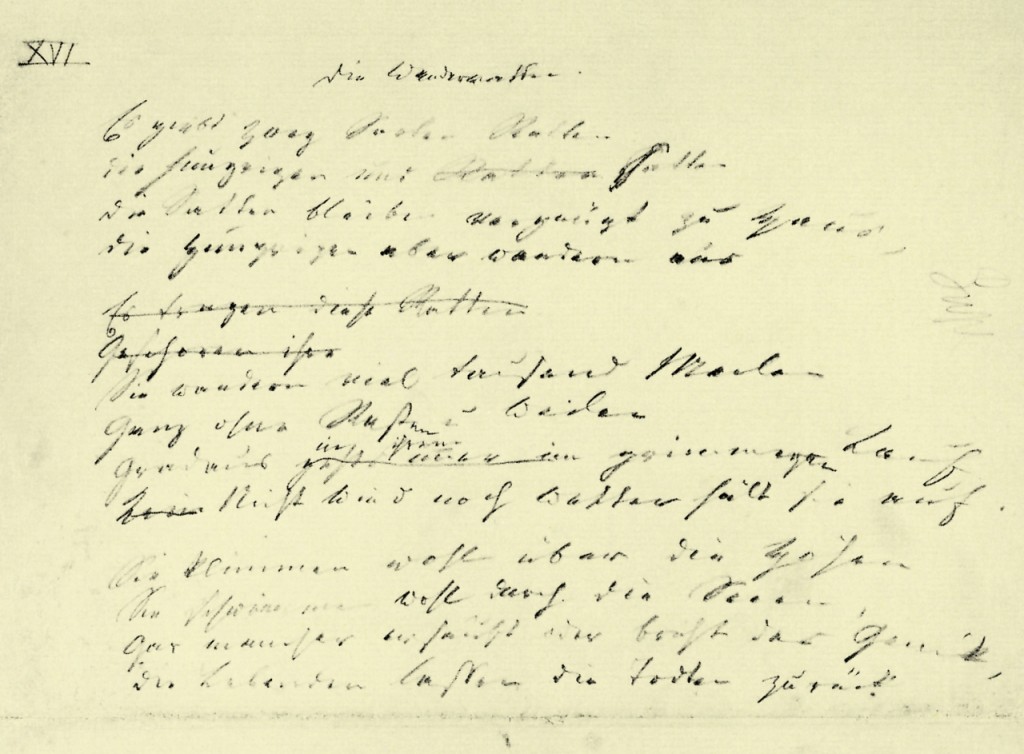 XVI
Die Wanderratten.
Es giebt zwey Sorten Ratten
die hungrigen und Ratten satten
die Satten bleiben vergnügt zu Haus,
die hungrigen aber wandern aus
Es tragen diese Ratten
Geschoren ihre
Sie wandern viel tausend Meilen
Ganz ohne Rasten u Weilen
in ihrem
Gradaus geht immer im grimmigen Lauf
Kein Nicht Wind noch Wetter hält sie auf.
Sie klimmen wohl über die Höhen
Sie schwimmen wohl durch die Seen,
Gar mancher ersäuft oder bricht das Genick,
die Lebenden lassen die Todten zurück